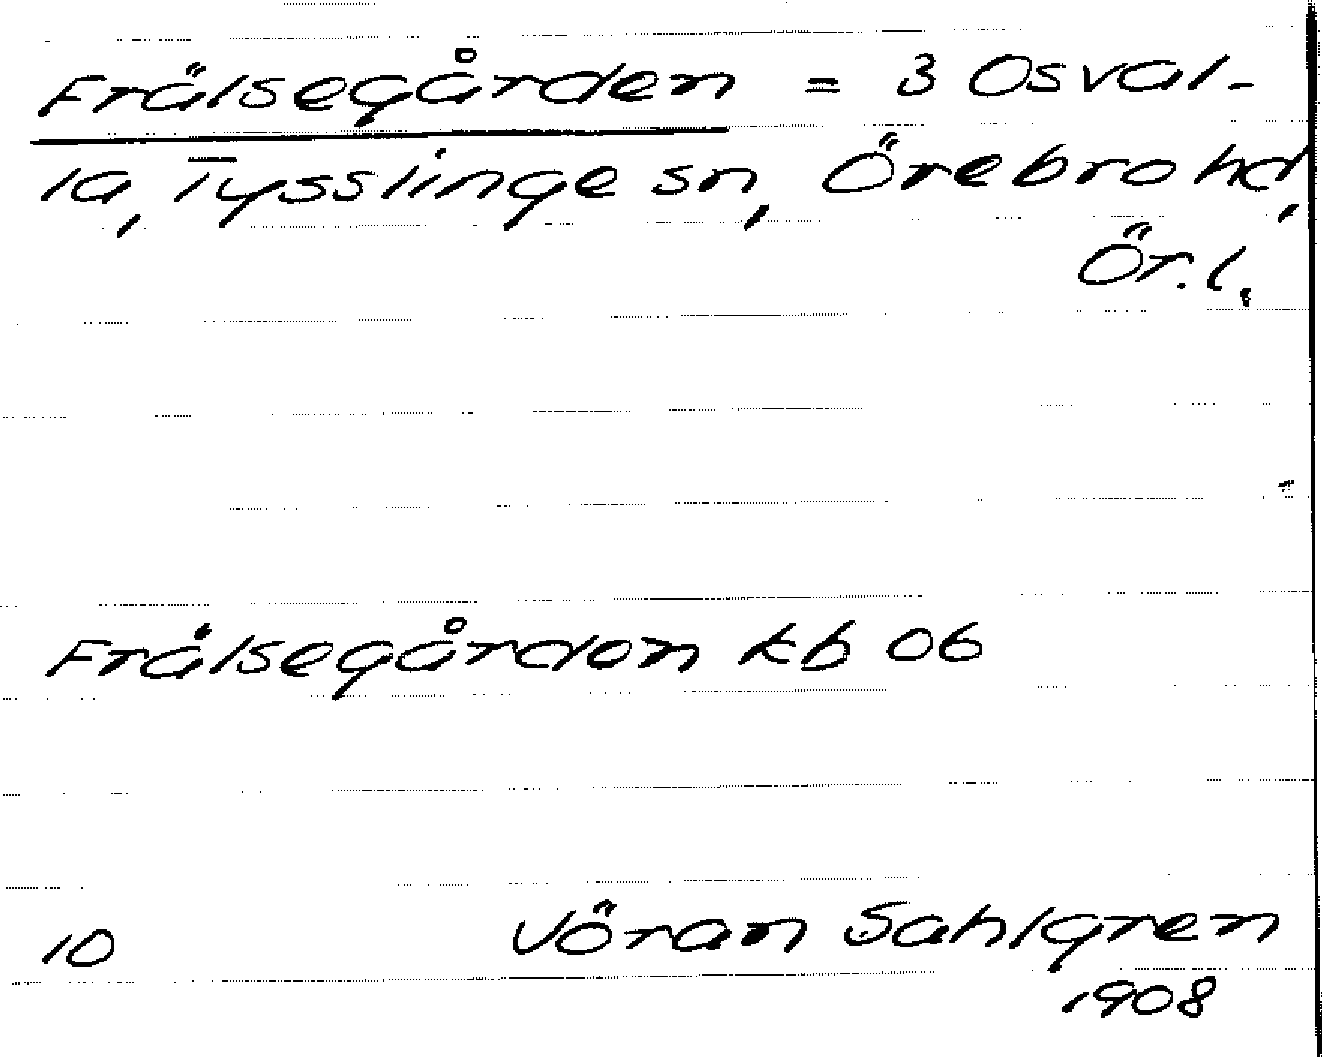 Frälsegården = 3 Osval-
la, Tysslinge sn, Örebro hd,
Ör. l.
Frälsegården kb 06
10 Jöran Sahlgren
1908